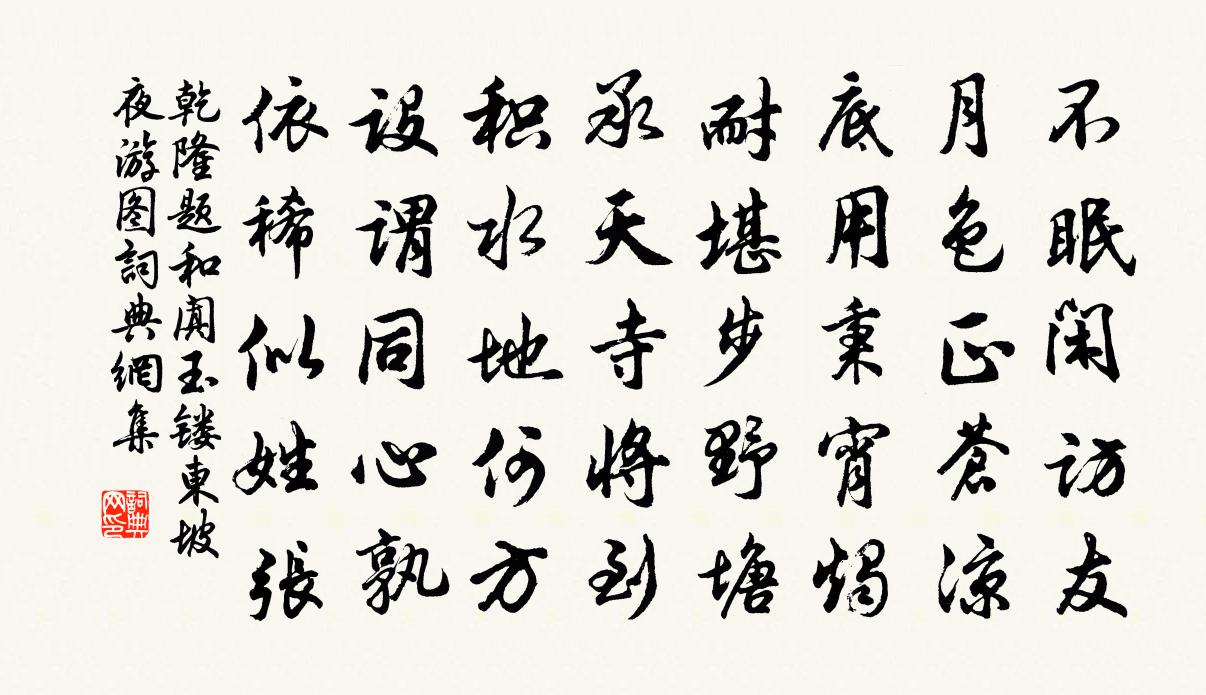 不眠閑访友
月色正蒼涼
底用秉宵燭
耐堪步野塘
承天寺將到
积水地何方
设谓同心孰
依稀似姓張
乾隆题和阗玉镂東坡
夜游图詞典網集
詞典网印